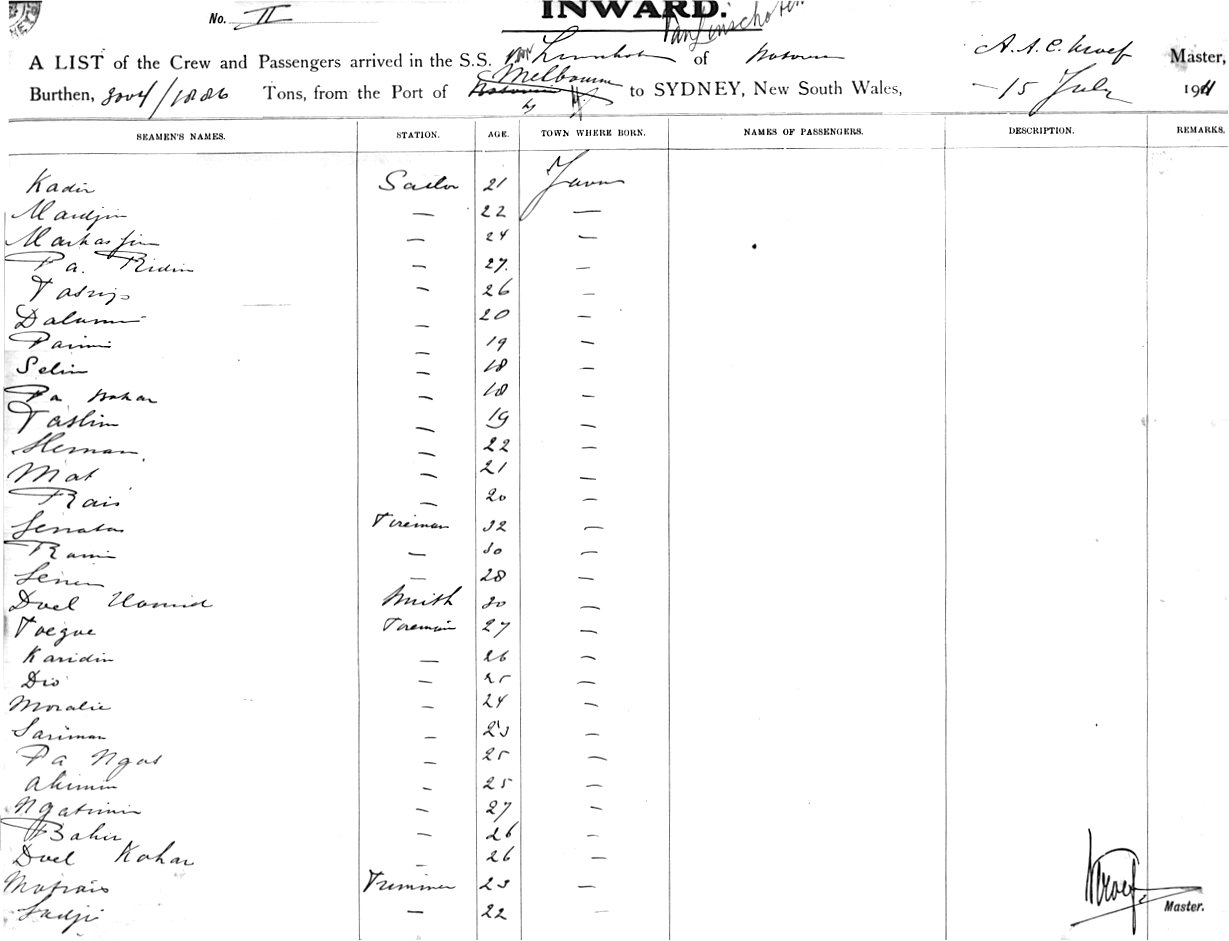 No. II
INWARD.
Van Linschoten
A LIST of the Crew and Passengers arrived in the S.S. van of Master,
Melbourne
Burthen, Tons, from the Port of to SYDNEY, New South Wales, 15 July 1911
SEAMEN'S NAMES. STATION. AGE. TOWN WHERE BORN. NAMES OF PASSENGERS. DESCRIPTION. REMARKS.
Kadir Sailor 21 Java
Mardjin — 22 —
— 24 —
Pa. Ridin — 27. —
— 26 —
— 20 —
Paimin — 19 —
Selin — 18 —
Pa — 18 —
Taslim — 19 —
— 22 —
Mat — 21 —
Rais — 20 —
Fireman 32 —
Rami — 30 —
Senen — 28 —
Doel Hamid Smith 30 —
Toegue Fireman 27 —
Karidin — 26 —
Dio — 25 —
Moralie — 24 —
Sariman — 23 —
Pa Ngas — 25 —
— 25 —
Ngatimin — 27 —
Bakir — 26 —
Doel Kahar — 26 —
Matrais Trimmer 23 —
Sadji — 22 —
Master.